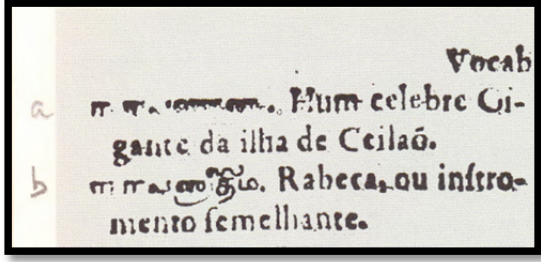 Vocab
a Hum celebre Gi-
gante da ilha de Ceilaõ.
b Rabeca, ou inſtro-
mento ſemelhante.